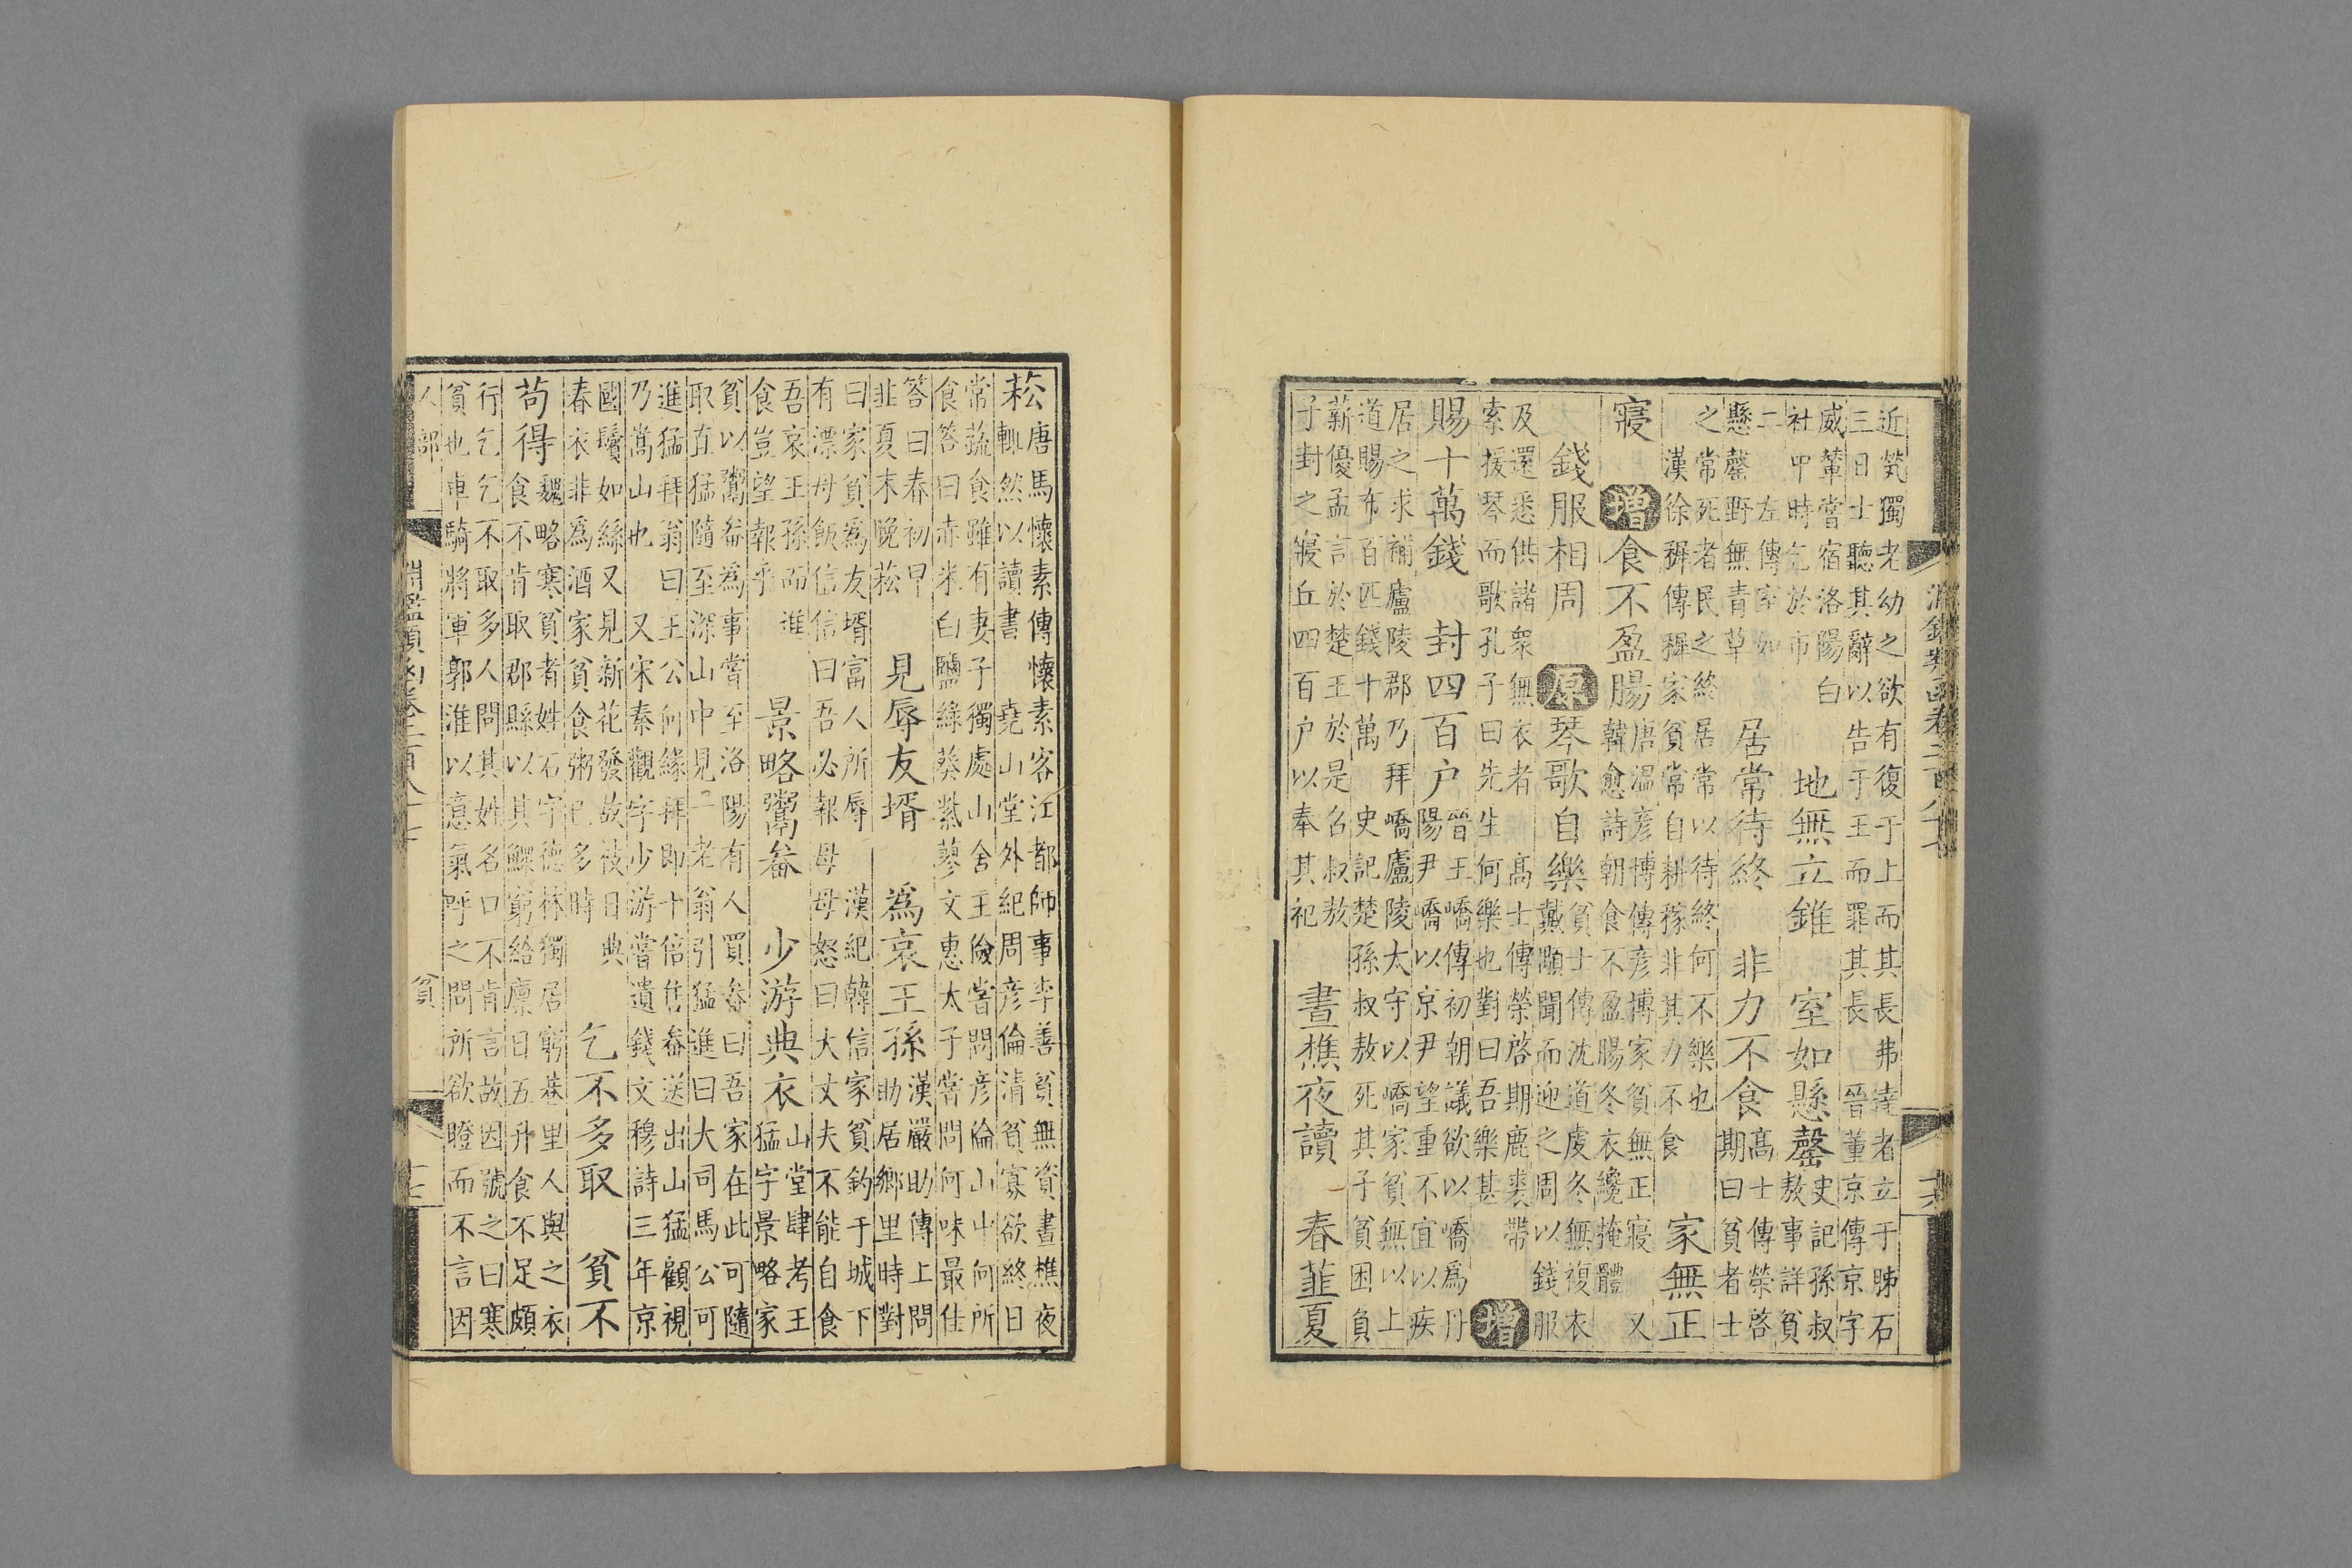 淵鑑類函卷二百八十七 十六
近㷀獨老幼之欲有復于上而其長弗達者立于肺石
三日士聽其辭以告于王而罪其長 晉董京傳京字
威輦嘗宿洛陽白
社中時乞於市 地無立錐 室如懸罄 史記孫叔
敖事詳貧
二 左傳室如
懸罄野無青草 居常待終 非力不食 高士傳榮啓
期曰貧者士
之常死者民之終居常以待終何不樂也
漢徐穉傳穉家貧常自耕稼非其力不食 家無正
寢 增 食不盈腸 唐溫彥博傳彥博家貧無正寢 又
韓愈詩朝食不盈腸冬衣纔掩體
錢服相周 原 琴歌自樂 貧士傳沈道虔冬無複衣
戴顒聞而迎之周以錢服
及還悉供諸衆無衣者 高士傳榮啓期鹿裘帶
索援琴而歌孔子曰先生何樂也對曰吾樂甚 增
賜十萬錢 封四百户 晉王嶠傳初朝議欲以嶠爲丹
陽尹嶠以京尹望重不宜以疾
居之求補廬陵郡乃拜嶠廬陵太守以嶠家貧無以上
道賜布百匹錢十萬 史記楚孫叔敖死其子貧困負
薪優孟言於楚王於是召叔敖
子封之寢丘四百户以奉其祀 晝樵夜讀 春韮夏
菘 唐馬懷素傳懷素客江都師事李善貧無資晝樵夜
輒然以讀書 堯山堂外紀周彥倫清貧寡欲終日
常蔬食雖有妻子獨處山舍王儉嘗問彥倫山中何所
食答曰赤米白鹽綠葵紫蓼文惠太子嘗問何味最佳
答曰春初早
韭夏末晚菘 見辱友壻 爲哀王孫 漢嚴助傳上問
助居鄉里時對
曰家貧爲友壻富人所辱 漢紀韓信家貧釣于城下
有漂母飯信信曰吾必報母母怒曰大丈夫不能自食
吾哀王孫而進
食豈望報乎 景略鬻畚 少游典衣 山堂肆考王
猛字景略家
貧以鬻畚爲事嘗至洛陽有人買畚曰吾家在此可隨
取直猛隨至深山中見一老翁引猛進曰大司馬公可
進猛拜翁曰王公何緣拜即十倍售畚送出山猛顧視
乃嵩山也 又宋秦觀字少游嘗遺錢文穆詩三年京
國鬢如絲又見新花發故枝日典
春衣非爲酒家貧食粥已多時 乞不多取 貧不
苟得 魏略寒貧者姓石字德林獨居窮巷里人與之衣
食不肯取郡縣以其鰥窮給廩日五升食不足頗
行乞乞不取多人問其姓名口不肯言故因號之曰寒
貧也車騎將軍郭淮以意氣呼之問所欲瞪而不言因
人部 淵鑑類函卷二百八十七 貧 十七